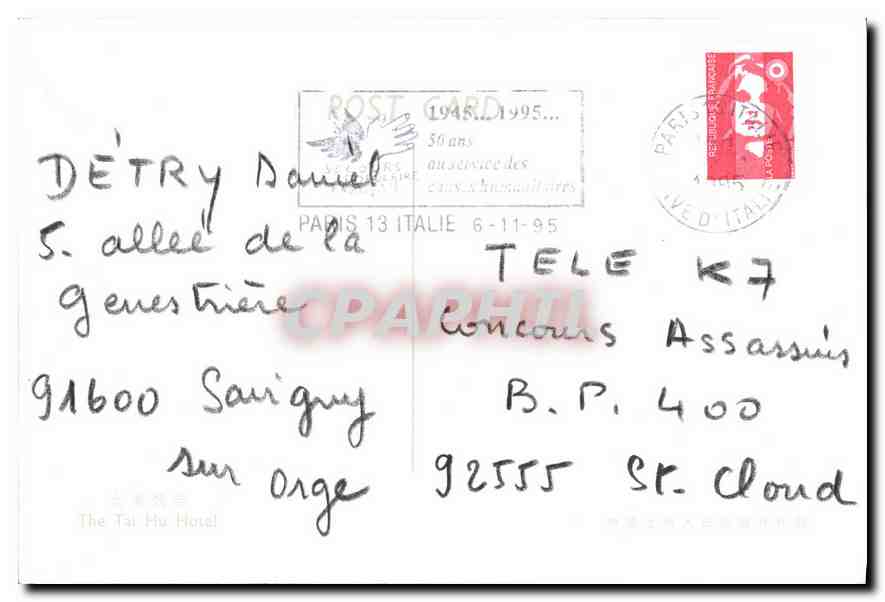 POST CARD
1945... 1995...
50 ans
au service des
causes humanitaires
SECOURS
POPULAIRE
PARIS 13 ITALIE 6-11-95
REPUBLIQUE FRANÇAISE
LA POSTE
PARIS
AVE D'ITALIE
DÉTRY Daniel
5. allée de la
genestrière
91600 Savigny
sur Orge
TELE K7
Concours Assassins
B.P. 400
92555 St. Cloud
CPAPHIL
The Tai Hu Hotel